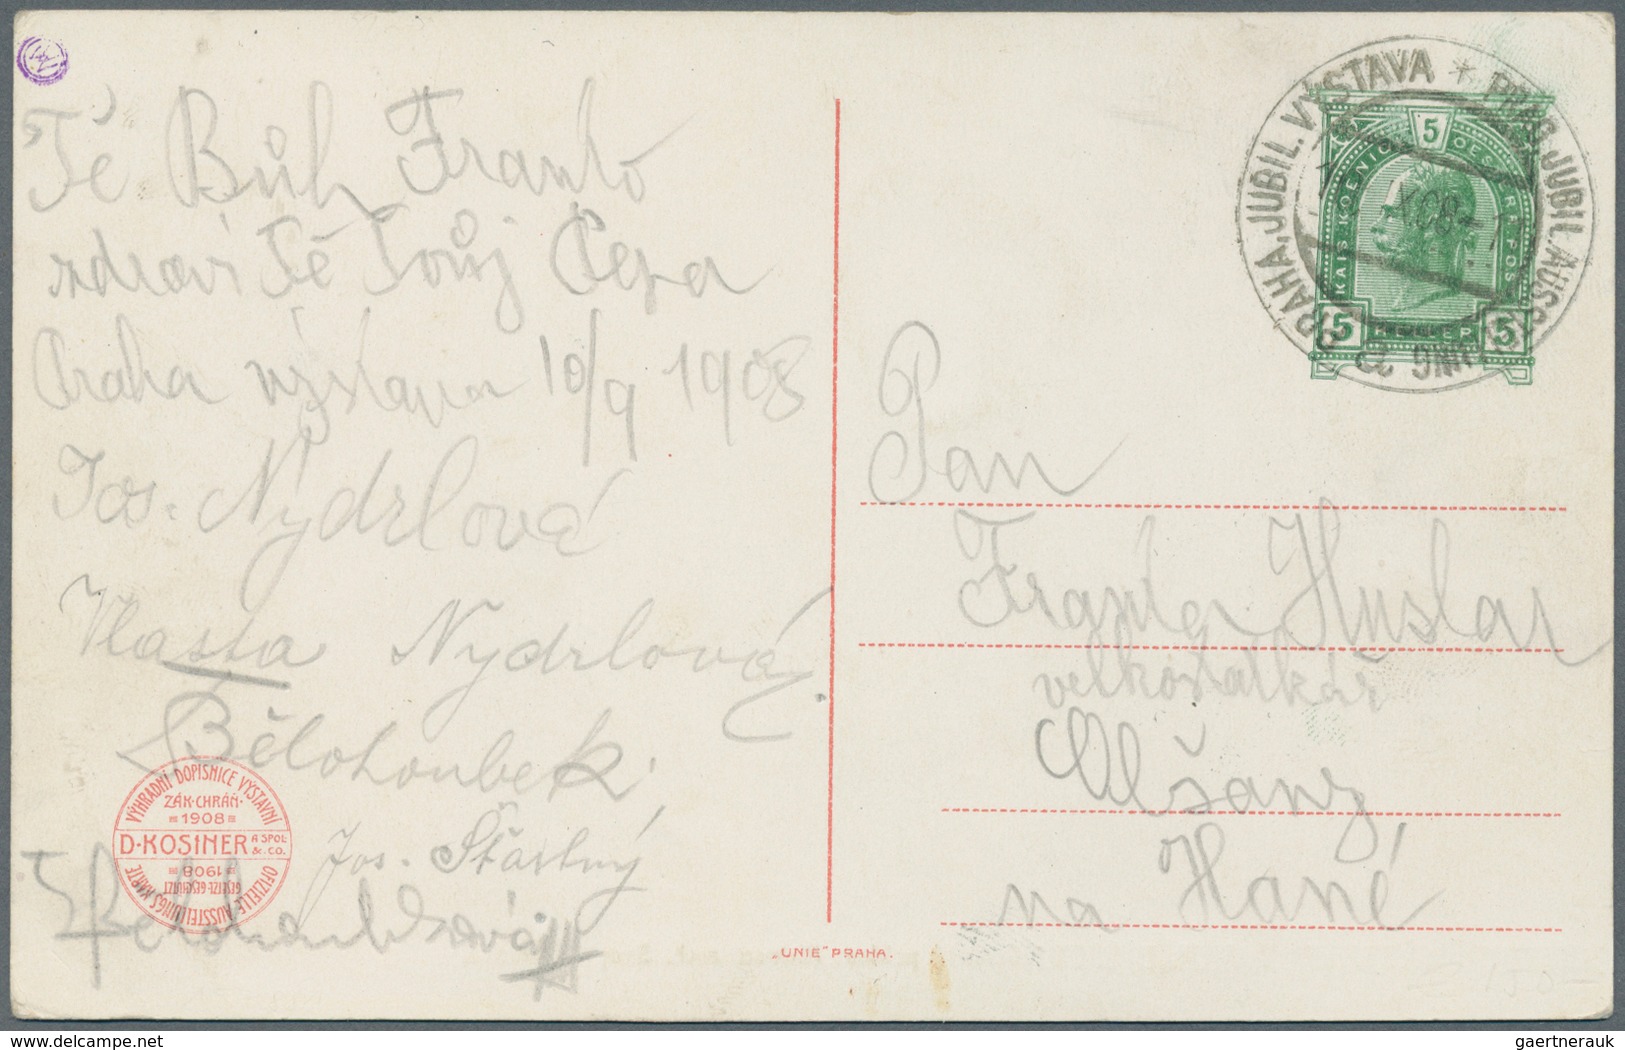 Tě Bůh Franto
zdraví Tě Tvůj Pepa
Praha výstava 10/9 1908
Jos. Nýdrlová
Vlasta Nydrlová.
Bělohoubek
Jos. Šťastný
VÝHRADNÍ DOPISNICE VÝSTAVNÍ
ZÁK·CHRÁŇ·
1908
D·KOSINER A SPOL· & CO.
1908
GESETZL·GESCHÜTZT
OFIZIELLE AUSSTELLUNGS KARTE
„UNIE“ PRAHA.
PRAHA.JUBIL.VÝSTAVA * PRAG.JUBIL.AUSSTELLUNG
5
KAIS KOENIGL OESTERR POST
5 HELLER 5
Pan
Franta Huslar
velkostatkář
Olšany
na Hané
gaertnerauk